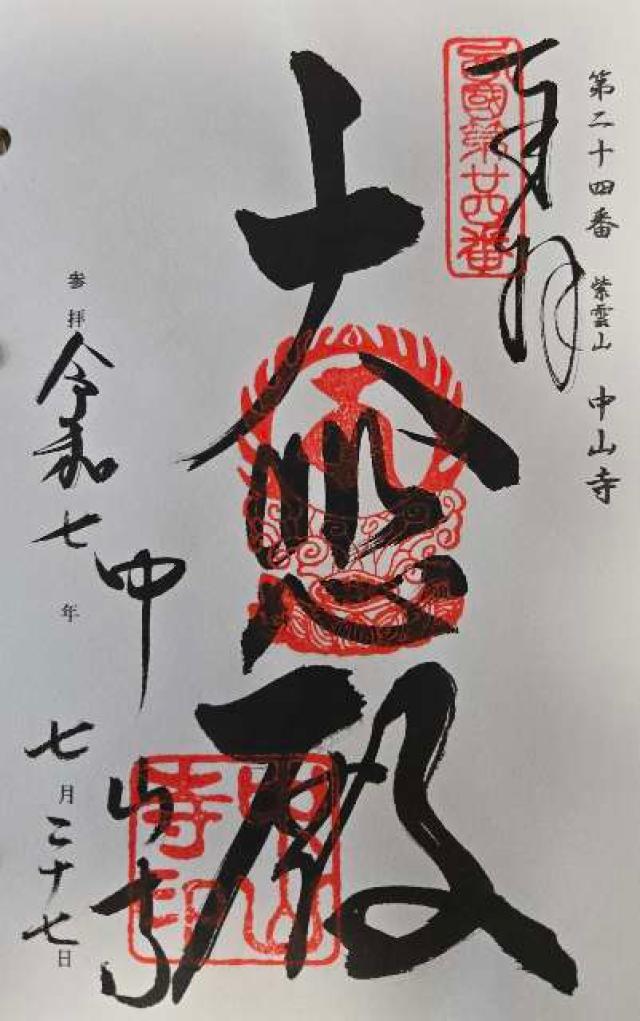 第二十四番 紫雲山 中山寺
奉拝
西國第廿四番
大悲殿
中山寺
中山寺印
参拝 令和七年 七月二十七日